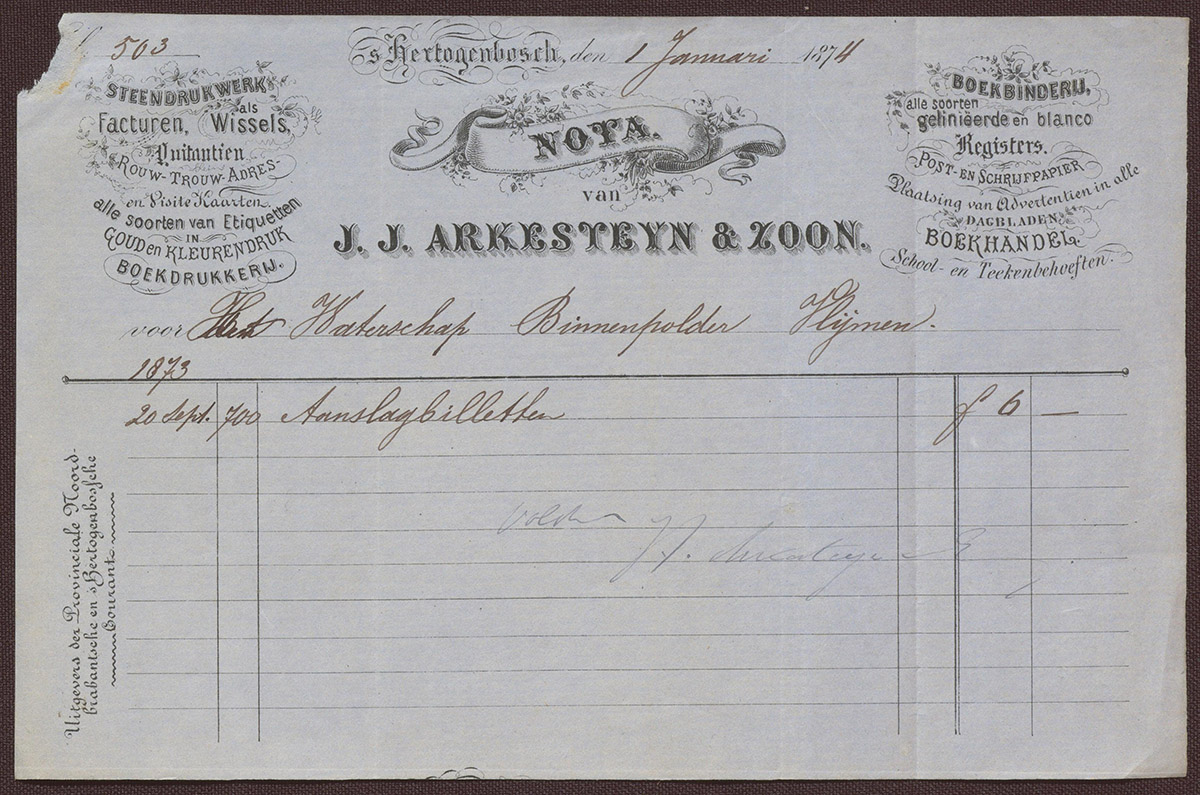 503
's Hertogenbosch, den 1 Januari 1874
STEENDRUKWERK,
als
Facturen, Wissels,
Quitantien
ROUW-TROUW-ADRES-
en Visite Kaarten,
alle soorten van Etiquetten
IN
GOUD en KLEURENDRUK
BOEKDRUKKERIJ.
NOTA.
van
J. J. ARKESTEYN & ZOON.
BOEKBINDERIJ,
alle soorten
gelinieerde en blanco
Registers.
POST- EN SCHRIJFPAPIER
Plaatsing van Advertentien in alle
DAGBLADEN
BOEKHANDEL.
School- en Teekenbehoeften.
voor Het Waterschap Binnenpolder Vlijmen.
1873
20 Sept. 700 Aanslagbilletten f 6 —
Uitgevers der Provinciale Noord-
brabantsche en 's Hertogenbossche
Courant